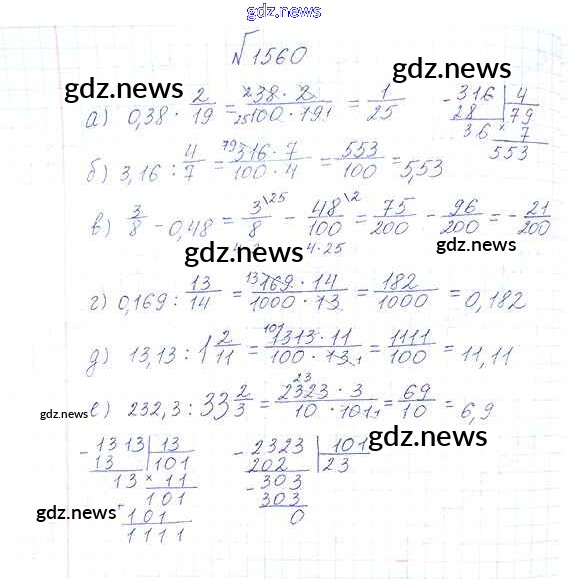 gdz.news
№1560
gdz.news
gdz.news
а) 0,38 · 2/19 = 38 · 2/100 · 19 = 1/25
316 | 4
28 | 79
36 × 7
553
б) 3,16 : 4/7 = 316 · 7/100 · 4 = 553/100 = 5,53
в) 3/8 - 0,48 = 3/8 \25 - 48/100 \2 = 75/200 - 96/200 = - 21/200
gdz.news
4·25
gdz.news
г) 0,169 : 13/14 = 169 · 14/1000 · 13 = 182/1000 = 0,182
д) 13,13 : 1 2/11 = 1313 · 11/100 · 13 = 1111/100 = 11,11
gdz.news
е) 232,3 : 33 2/3 = 2323 · 3/10 · 101 = 69/10 = 6,9
gdz.news
- 1313 | 13
13 | 101
13 × 11
101
+ 101
1111
- 2323 | 101
202 | 23
- 303
303
0
gdz.news
gdz.news